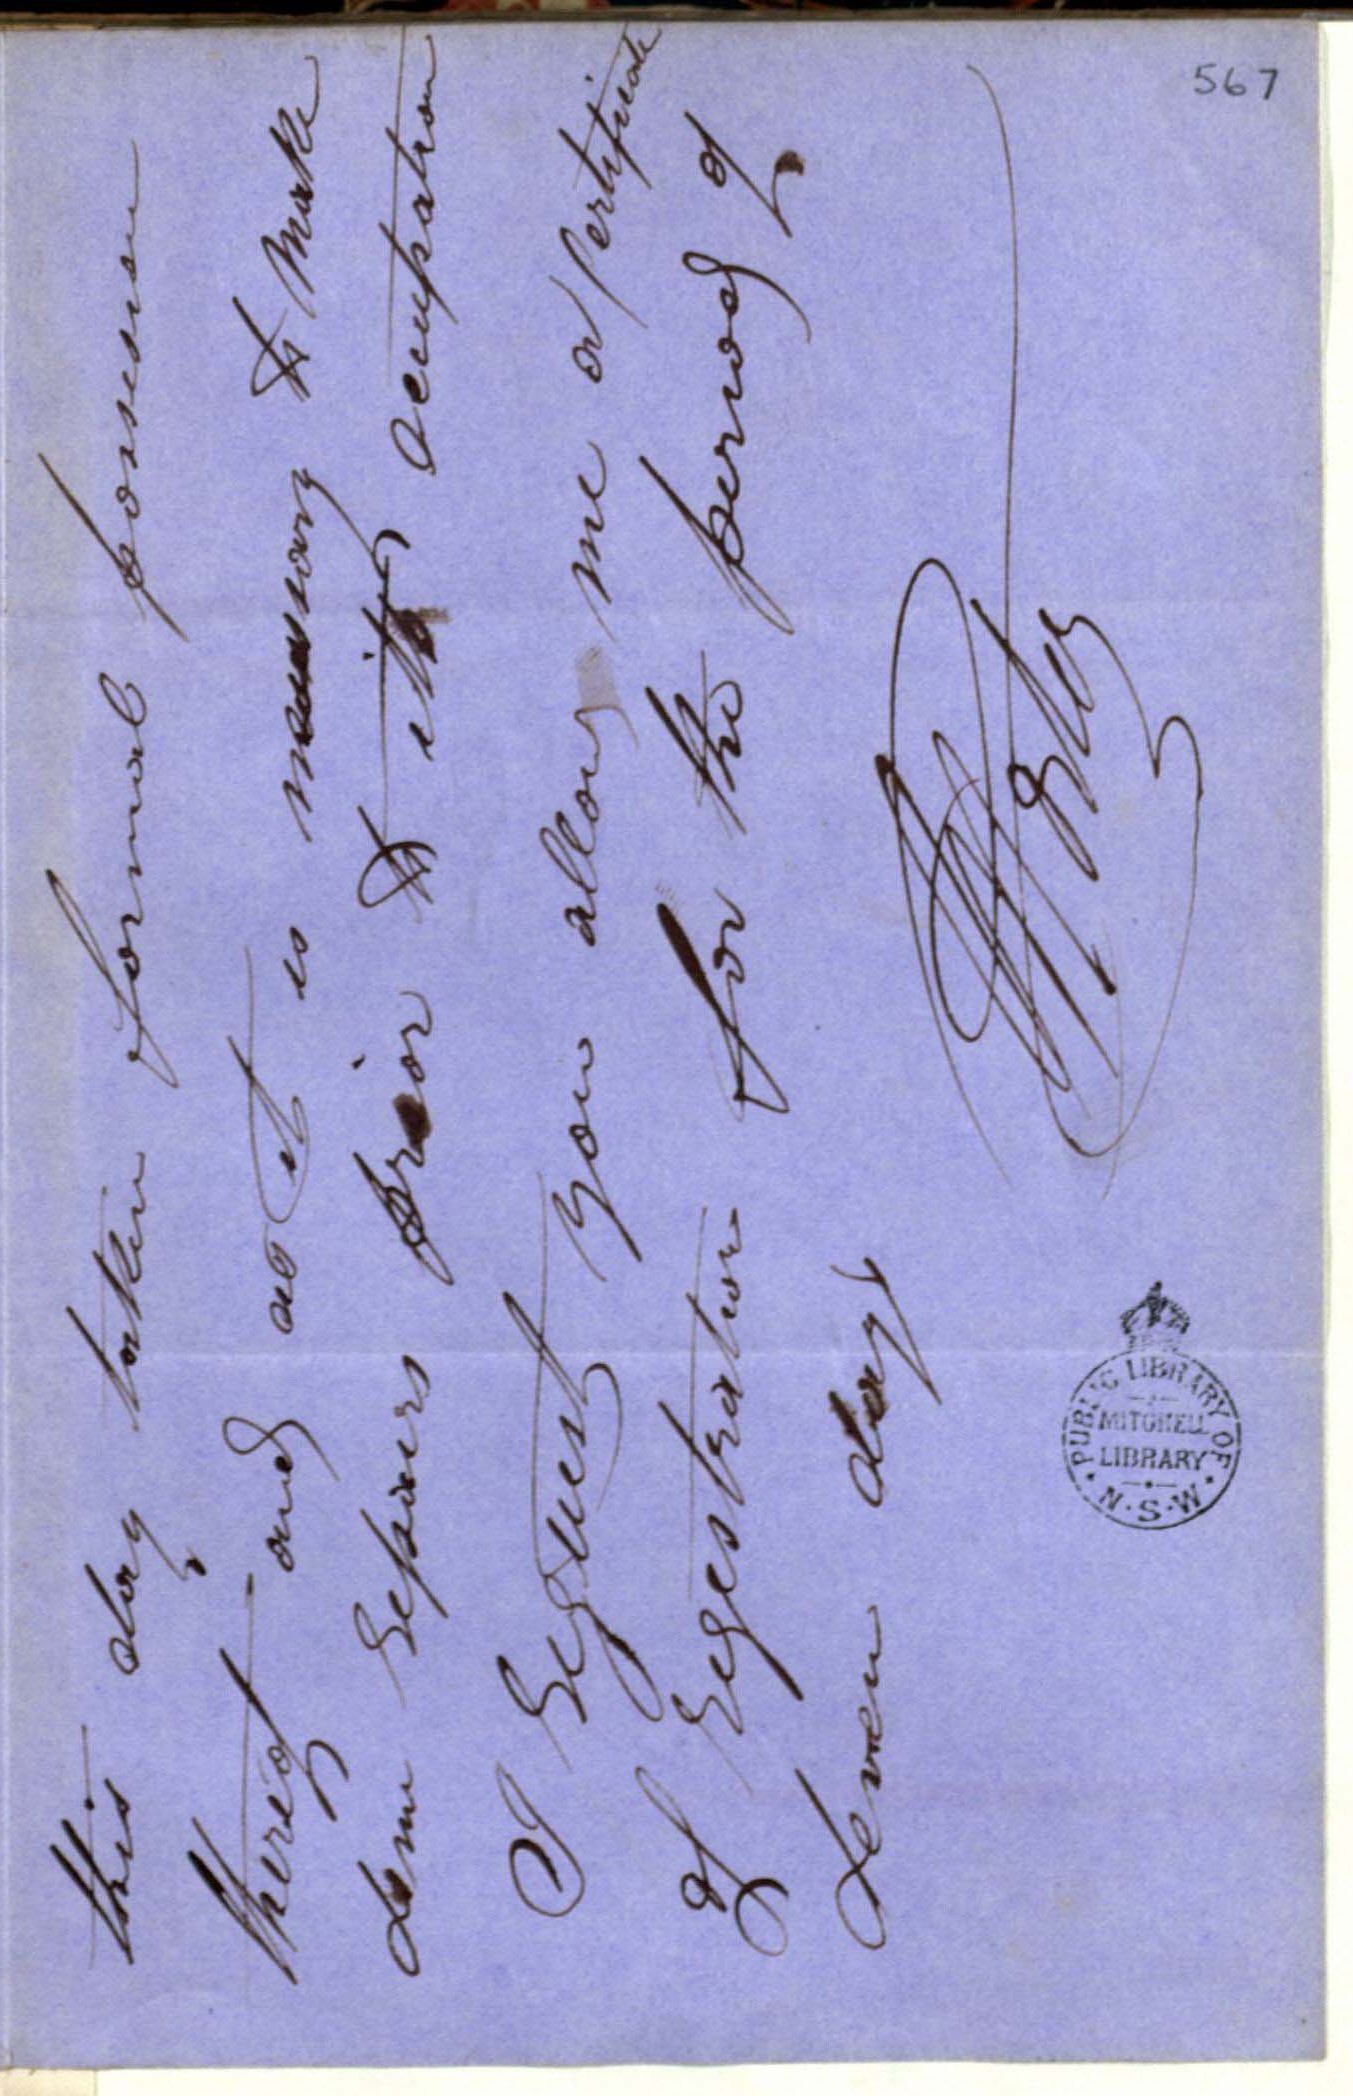 567
this day taken formal possession
thereof and as it is necessary to Make
some repairs prior to its occupation
I request you allow me a Certificate
of registration for the period of
seven days
PUBLIC LIBRARY OF
MITCHELL
LIBRARY
N·S·W